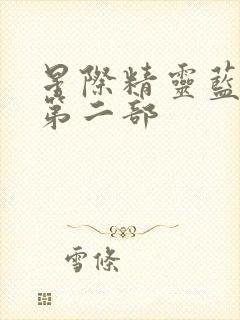 星際精靈藍
第二部
雪條